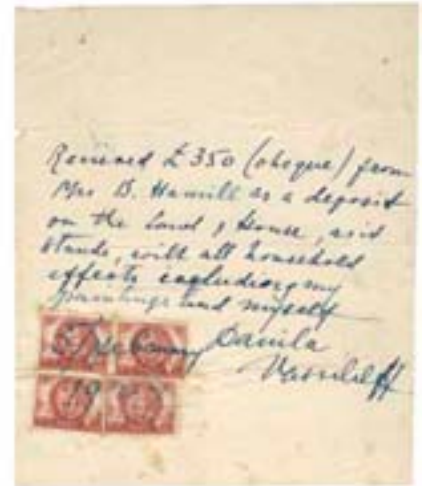 Received £350 (cheque) from
Mrs B. Hamill as a deposit
on the land, House, as it
stands, with all household
effects excluding my
paintings and myself
Danila
Vassilieff